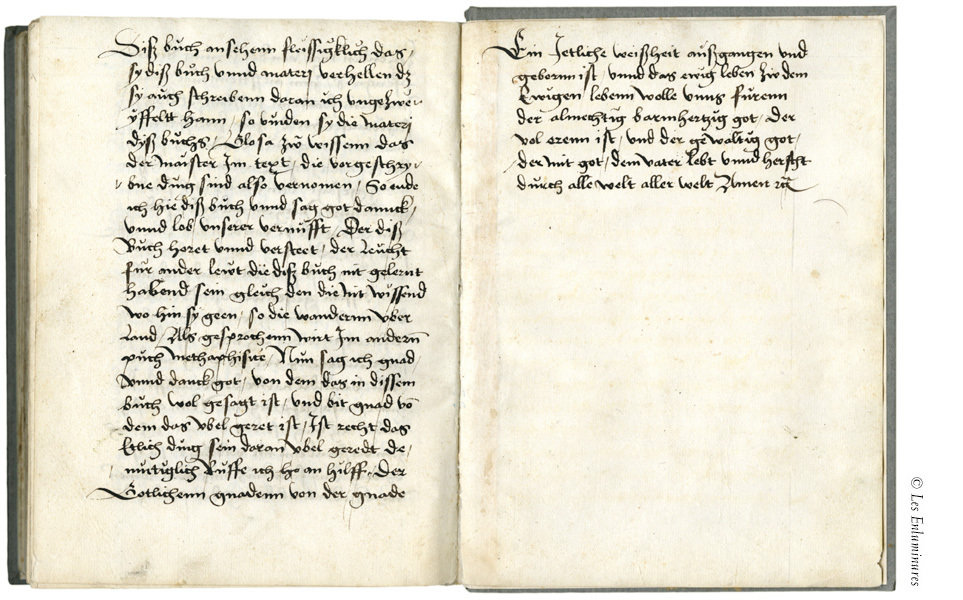 Disz buch ansehenn fleissigklich das /
sy disz buch vnnd materj verhellen dz
sy auch schreibenn daran ich vngezwe-
yffelt hann / so vinden sy die materj
dysz buchs / Glosa zuo wissenn das
der maister Im text / die vorgeschry-
bne ding sind also vernomen / So ende
ich hie disz buch vnnd sag got dannck /
vnnd lob vnserer vernufft / Der disz
Buch horet vnnd versteet / der leucht
fur ander lewt die disz buch nit gelernt
habend sein gleich den die nit wissend
wo hin sy geen / so die wandernn vber
Land / Als gesprochenn wirt Im andernn
puch methaphisice / Nun sag ich gnad /
vnnd danck got / von dem das in dissem
buch wol gesagt ist / vnd bit gnad võ
dem das vbel geret ist / Ist recht das
Etlich ding sein daran vbel geredt de-
mutiglich Ruffe ich ho an hilff / Der
Gotlichenn gnadenn von der gnade
Ein Jetliche weiszheit auszgangen vnd
gebornn ist / vnnd das ewig leben zuo dem
Ewigen lebenn wolle vnns furenn
der almechtig barmhertzig got / der
vol erenn ist / vnd der gewaltig got /
der mit got / dem vater lebt vnnd herscht
durch alle welt aller welt Amen
© Les Enluminures